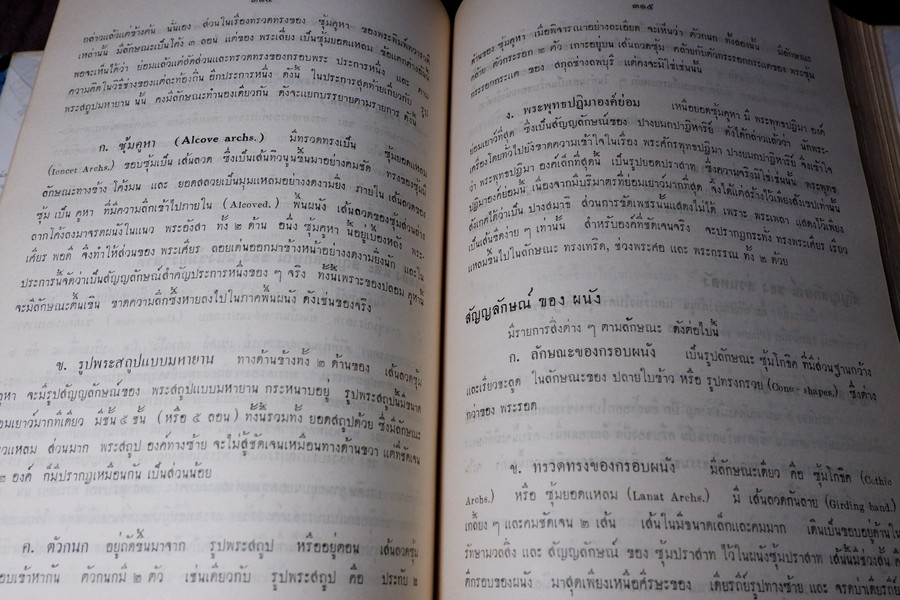 ๓๑๔
กล่าวแล้วแต่ข้างต้น นั่นเอง ส่วนในเรื่องทรวดทรงของ ซุ้มคูหา ของพระพิมพ์
เหล่านั้น มีลักษณะเป็นโค้ง ๓ ลอน แต่ของ พระเลี่ยง เป็นซุ้มยอดแหลม ข้อแตกต่าง
พอจะเห็นได้ว่า ย่อมแล้วแต่สัดส่วนและทรวดทรงของกรอบพระ ประการหนึ่ง และ ตาม
ความคิดในวิธีช่างของแต่ละท้องถิ่น อีกประการหนึ่ง ดังนั้น ในประการสุดท้ายเกี่ยวกับ รูป
พระสถูปมหายาน นั้น คงมีลักษณะทำนองเดียวกัน ดังจะแยกบรรยายตามรายการ ดังนี้
ก. ซุ้มคูหา (Alcove archs.) มีทรวดทรงเป็น ซุ้มยอดแหลม
(Ioncet Archs.) ขอบซุ้มเป็น เส้นลวด ซึ่งเป็นเส้นทิวนูนขึ้นมาอย่างคมชัด ทรงของซุ้มมี
ลักษณะทางข้าง โค้งมน และ ยอดสลวยเป็นมุมแหลมอย่างงดงามยิ่ง ภายใน เส้นลวดของ
ซุ้ม เป็น คูหา ที่มีความลึกเข้าไปภายใน (Alcoved.) พื้นผนัง เส้นลวดของซุ้มส่วนล่าง
ลากโค้งลงมาจรดผนังในแนว พระอังสา ทั้ง ๒ ด้าน อนึ่ง ซุ้มคูหา นี้อยู่เบื้องหลัง พระ-
เศียร พอดี จึงทำให้ส่วนของ พระเศียร ลอยเด่นออกมาข้างหน้าอย่างงดงามยิ่งนัก และใน
ประการนี้จัดว่าเป็นสัญญลักษณ์สำคัญประการหนึ่งของ ๆ จริง ทั้งนี้เพราะของปลอม คูหานี้
จะมีลักษณะตื้นเขิน ขาดความลึกซึ้งหายลงไปในภาคพื้นผนัง ดังเช่นของจริง
ข. รูปพระสถูปแบบมหายาน ทางด้านข้างทั้ง ๒ ด้านของ เส้นลวดซุ้ม
คูหา จะมีรูปสัญญลักษณ์ของ พระสถูปแบบมหายาน กระหนาบอยู่ รูปพระสถูปนี้มีขนาด
ย่อมเยาว์มากทีเดียว มีชั้น ๕ ชั้น (หรือ ๕ ลอน) ทั้งนี้รวมทั้ง ยอดสถูปด้วย ซึ่งมีลักษณะ
แหลม ส่วนมาก พระสถูป องค์ทางซ้าย จะไม่สู้ชัดเจนเหมือนทางด้านขวา แต่ที่ชัดเจน
๒ องค์ ก็มีปรากฏเหมือนกัน เป็นส่วนน้อย
ค. ตัวกนก อยู่ถัดขึ้นมาจาก รูปพระสถูป หรืออยู่ตอน เส้นลวดซุ้ม
สอบเข้าหากัน ตัวกนกมี ๒ ตัว เช่นเดียวกับ รูปพระสถูป คือ ประกับ ๒
๓๑๕
ด้านของ ซุ้มคูหา เมื่อพิจารณาอย่างละเอียด จะเห็นว่า ตัวกนก ทั้งสองนั้น มีลักษณะ
คล้าย ตัวกระรอก ๒ ตัว เกาะอยู่บน เส้นลวดซุ้ม คล้ายกับตัวกระรอกกระแต ของ พระซุ้ม
กระรอกกระแต ของ สกุลช่างลพบุรี แต่คงจะมิใช่เช่นนั้น
ง. พระพุทธปฏิมาองค์ย่อม เหนือยอดซุ้มคูหา มี พระพุทธปฏิมา องค์
ย่อมเยาว์ที่สุด ซึ่งเป็นสัญญลักษณ์ของ ปางยมกปาฏิหาริย์ ดังได้กล่าวแล้วว่า นักพระ-
เครื่องโดยทั่วไปยังขาดความเข้าใจในเรื่อง พระศักรพุทธปฏิมา ปางยมกปาฏิหาริย์ จึงเข้าใจ
ว่า พระพุทธปฏิมา องค์เล็กที่สุดนั้น เป็นรูปยอดปราสาท ซึ่งความจริงมิใช่เช่นนั้น พระพุทธ
ปฏิมาองค์ย่อมนี้ เนื่องจากมีปริมาตรที่ย่อมเยาว์มากที่สุด จึงได้แต่สร้างไว้เพียงสังเขปเท่านั้น
สังเกตได้ว่าเป็น ปางสมาธิ ส่วนการขัดเพชรนั้นแสดงไม่ได้ เพราะ พระเพลา แสดงไว้เพียง
เป็นเส้นขีดง่าย ๆ เท่านั้น สำหรับองค์ที่ชัดเจนจริง จะปรากฏกระทั่ง ทรงพระเศียร เรียว
แหลมขึ้นไปในลักษณะ ทรงเทริด, ช่วงพระศอ และ พระกรรณ ทั้ง ๒ ด้วย
สัญญลักษณ์ ของ ผนัง
มีรายการสิ่งต่าง ๆ ตามลักษณะ ดังต่อไปนี้
ก. ลักษณะของกรอบผนัง เป็นรูปลักษณะ ซุ้มโกธิค ที่มีส่วนฐานกว้าง
และเรียวชะลูด ในลักษณะของ ปลายใบข้าว หรือ รูปทรงกรวย (Cone shapes.) ซึ่งต่าง
กว่าของ พระรอด
ข. ทรวดทรงของกรอบผนัง มีลักษณะเดียว คือ ซุ้มโกธิค (Gothic
Archs.) หรือ ซุ้มยอดแหลม (Lanat Archs.) มี เส้นลวดกันลาย (Girding band.)
เกลี้ยง ๆ และคมชัดเจน ๒ เส้น เส้นในมีขนาดเล็กและคมมาก เดินเป็นขอบอยู่ด้านใน
รักษามวลสิ่ง และ สัญญลักษณ์ ของ ซุ้มปราสาท ไว้ในผนังซุ้มปราสาท เส้นนี้มีช่วงสั้น
คือกรอบของผนัง มาสุดเพียงเหนือศีรษะของ เดียรถีย์รูปทางซ้าย และ จรดบ่าเดียรถีย์